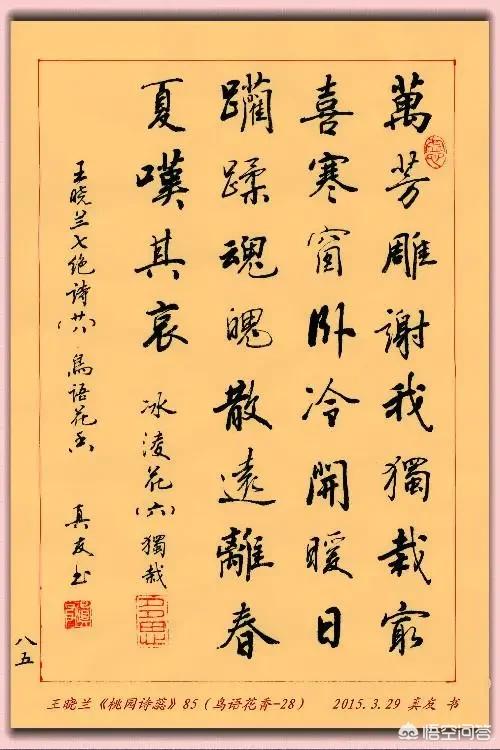 萬芳雕謝我獨栽㝡
喜寒窗卧冷開暖日
躪蹂魂魄散遠離春
夏嘆其哀 冰淩花(六)獨栽
王晓兰七绝诗(廿八) 鸟语花香 真友书
八五
王晓兰《桃园诗蕊》85(鸟语花香-28) 2015.3.29 真友 书
悟空问答